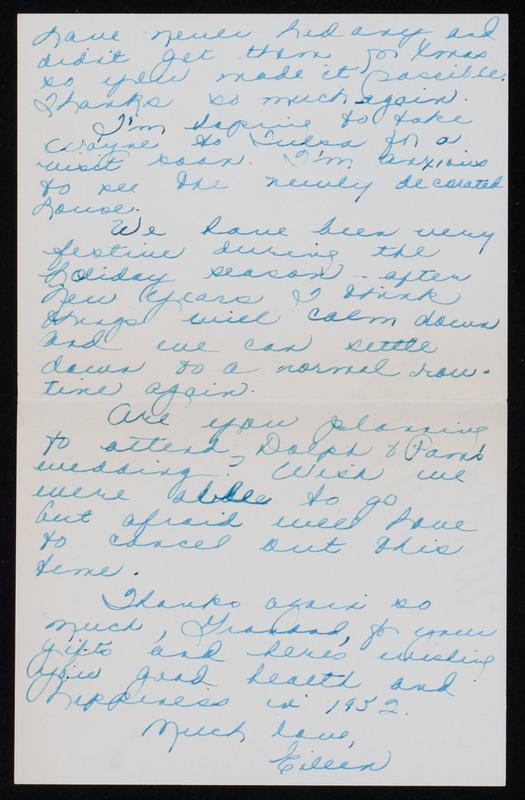 have never had any and
didn't get them for Xmas
so you made it possible.
Thanks so much again.
I'm hoping to take
Wayne to Tulsa for a
visit soon. I'm anxious
to see the newly decorated
house.
We have been very
festive during the
holiday season - after
New Years I think
things will calm down
and we can settle
down to a normal rou-
tine again.
Are you planning
to attend Dolph & Pam's
wedding? Wish we
were able to go
but afraid well have
to cancel out this
time.
Thanks again so
much, for your
gifts and here's wishing
you good health and
happiness in 1952.
Much love,
Eileen